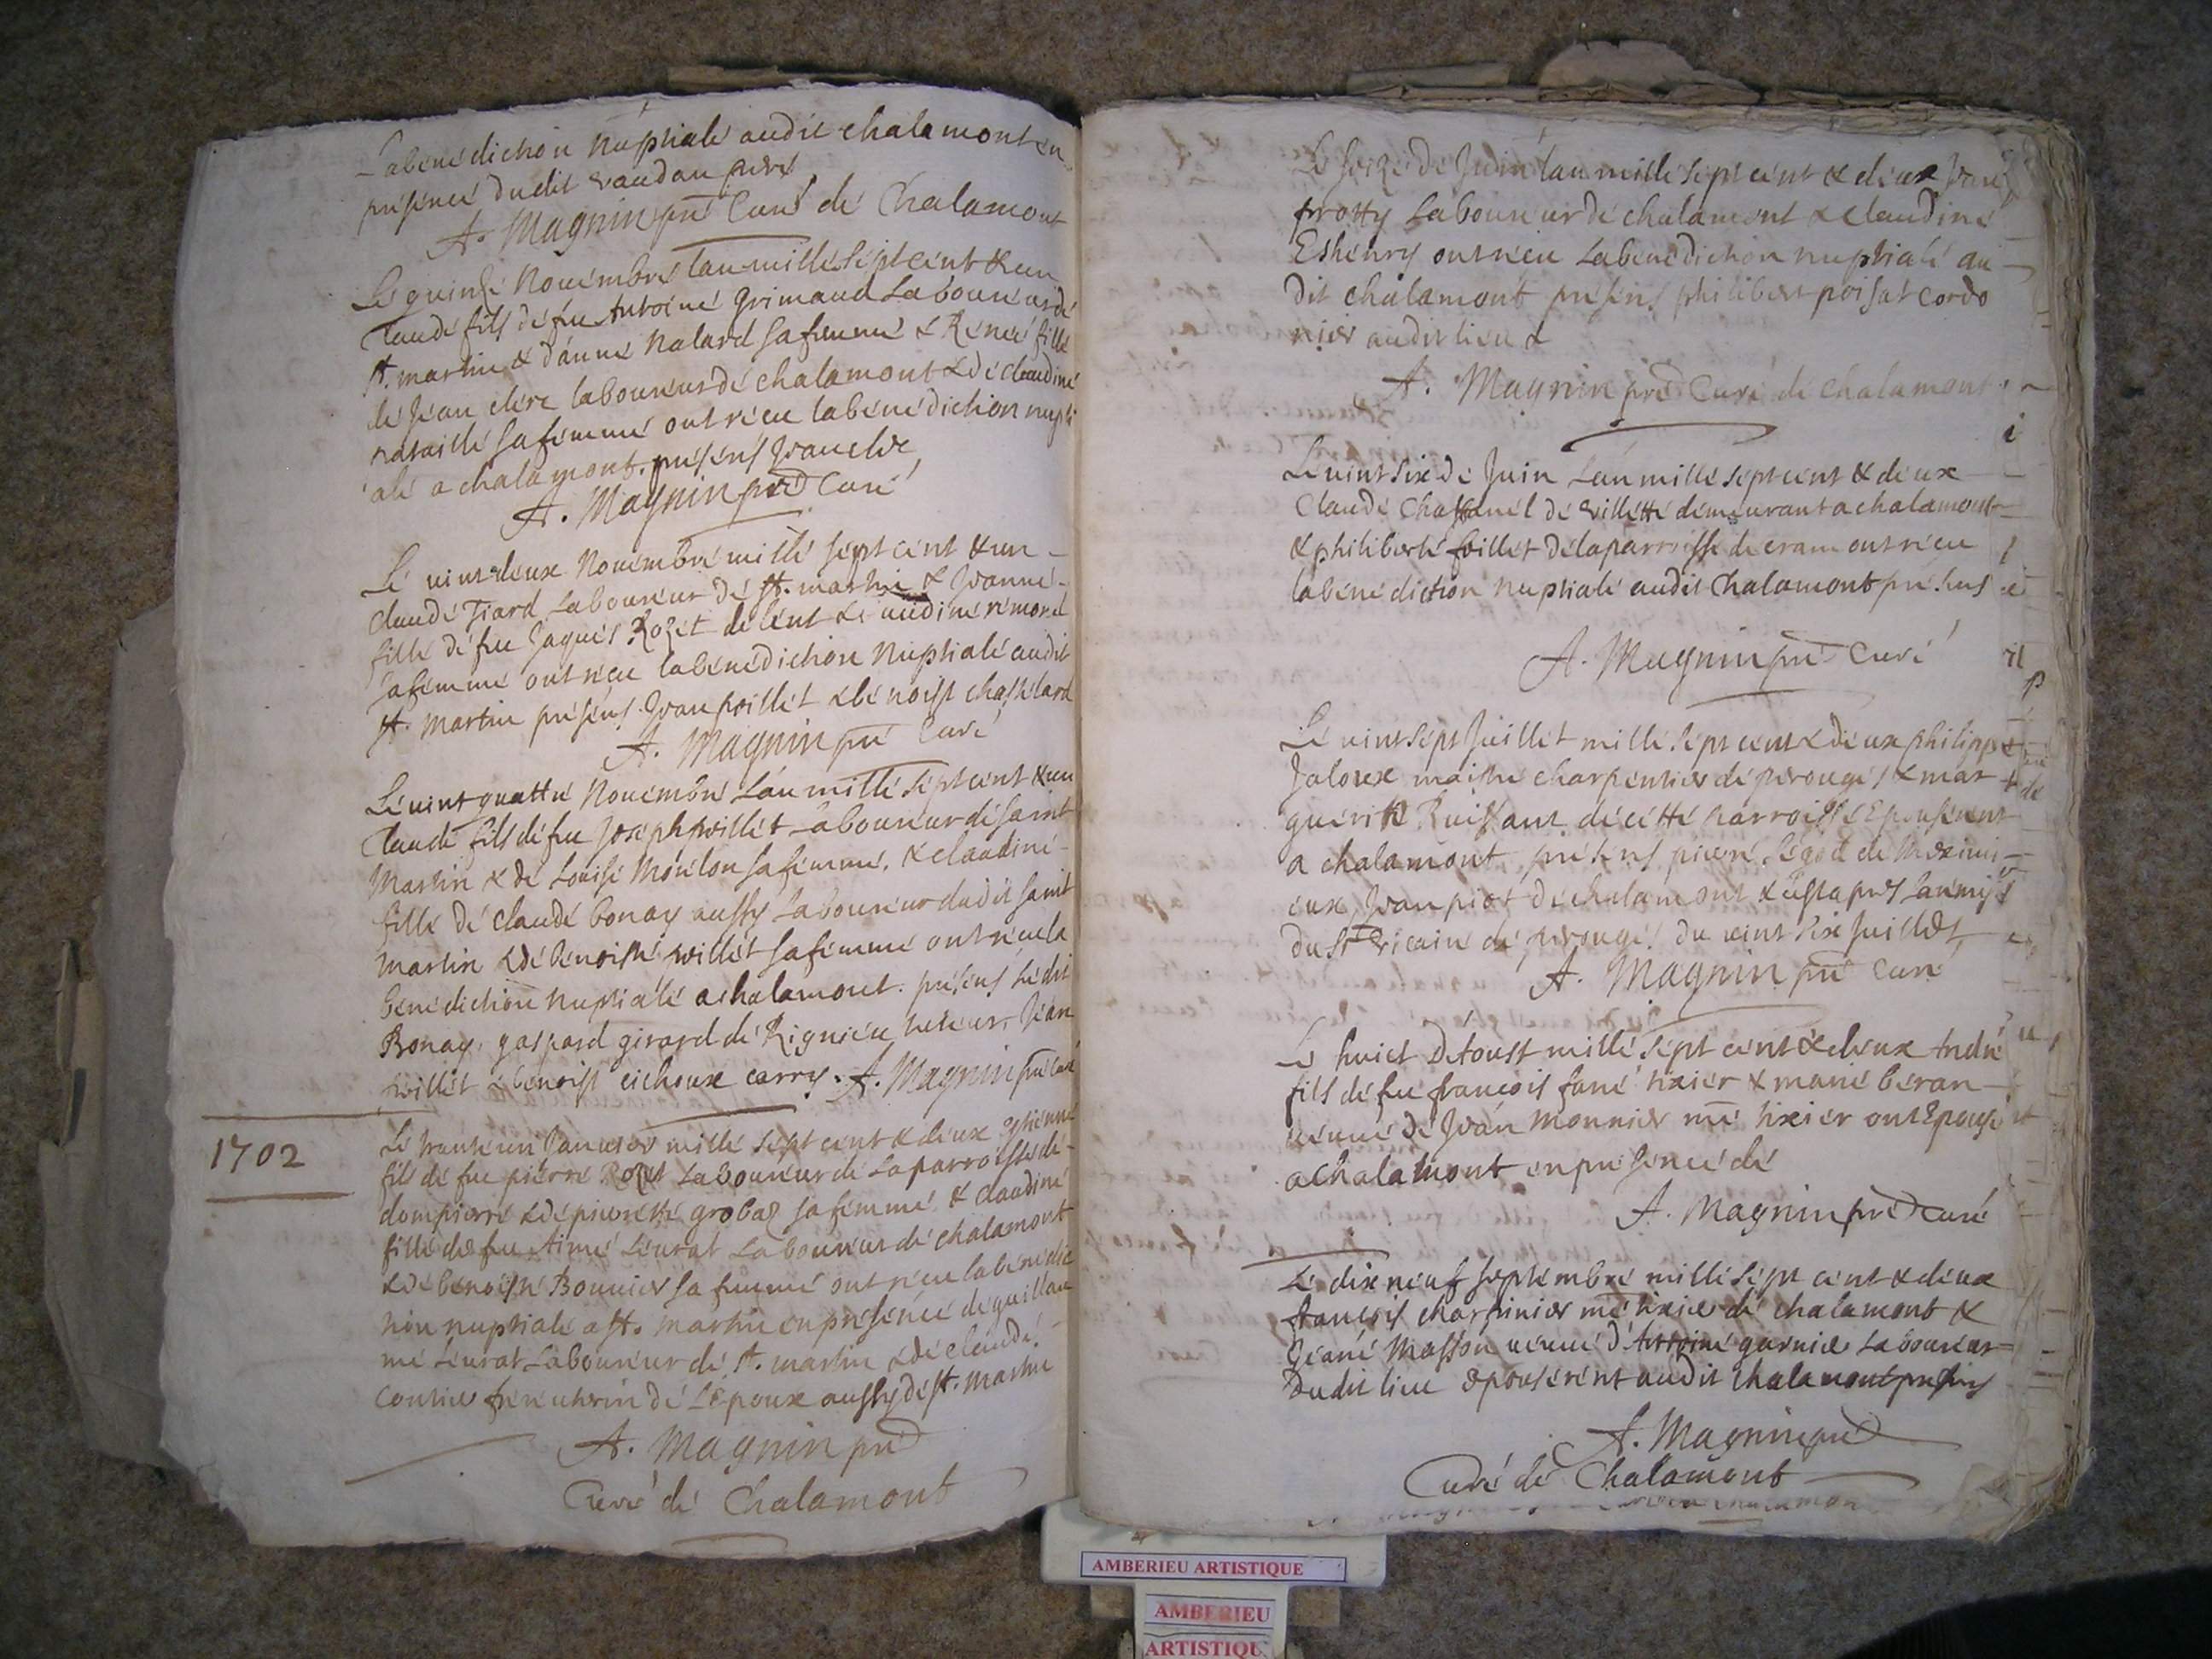 Labenediction Nuptiale audit chalamont en
presence dudit vaudan pere
A. Magnin pre Curé de Chalamont
Le quinze Nouembre lan mille sept cent & un
Claude fils de feu Antoine Grimaud Laboureur de
st. martin & d'anne Nalard sa femme & Renee fille
de Jean clerc laboureur de chalamont & de claudine
sa femme ont receu la benediction nupti
ale a chalamont. presens Jean clerc
A. Magnin pre Curé
Le vint deux Nouembre mille sept cent & un
claude Tiard Laboureur de st. martin & Jeanne
fille de feu Jaques Rozet de lent & claudine remond
sa femme ont receu la benediction Nuptiale audit
st. martin presens Jean poillet & benoist chastelard
A. Magnin pre Curé
Le vint quattre Nouembre Lan mille sept cent & un
Claude fils de feu Joseph poillet Laboureur de saint
Martin & de Louise Moulon sa femme, & claudine
fille de claude bonay aussy Laboureur dudit saint
Martin & de benoiste poillet sa femme ont receu la
benediction nuptiale a chalamont. presens Ledit
Bonay, gaspard girard de Rignieu, Jean
poillet & benoist carry. A. Magnin pre Curé
1702
Le trante un Januier mille sept cent & deux Estienne
fils de feu pierre Rozet Laboureur de La parroisse de
dompierre & de pierrette grobaz sa femme & claudine
fille de feu Aimé Leurat Laboureur de chalamont
& de benoiste Bouuier sa femme ont receu la benedic
tion nuptiale a st. martin en presence de guillau
me Leurat Laboureur de st. martin & de claude
frere uterin de L'epoux aussy de st. martin
A. Magnin pre
Curé de Chalamont
Le seize de Juin lan mille sept cent & deux Jean
frotty Laboureur de chalamont & claudine
Eshenry ont receu La benediction nuptiale au
dit chalamont presens philibert poisat cordo
nier audit lieu &
A. Magnin pre Curé de Chalamont
Le vint six de Juin Lan mille sept cent & deux
Claude Chastanel de villette demeurant a chalamont
& philiberte foillet de la parroisse de cram ont receu
la benediction Nuptiale audit Chalamont presens
A. Magnin pre Curé
Le vint sept Juillet mille sept cent & deux philippe
Jaloux maitre charpentier de perouges & mar
guerite Ruissant de cette parroisse Epouserent
a chalamont, presens pierre de Meximi
eux, Jean piot de chalamont & c'est apres la remise
du Sr vicaire de perouge du vint six Juillet
A. Magnin pre Curé
Le huict D'Aoust mille sept cent & deux André
fils de feu françois fané tixier & marie beran
veuue de Jean Monnier me tixier ont Epousé
a Chalamont en presence de
A. Magnin pre Curé
Le dix neuf septembre mille sept cent & deux
françois charpinier me tixier de chalamont &
Jeane Masson veuue d'Antoine garnier Laboureur
Dudit lieu epouserent audit chalamont presens
A. Magnin pre
Curé de Chalamont
AMBERIEU ARTISTIQUE
AMBERIEU
ARTISTIQU